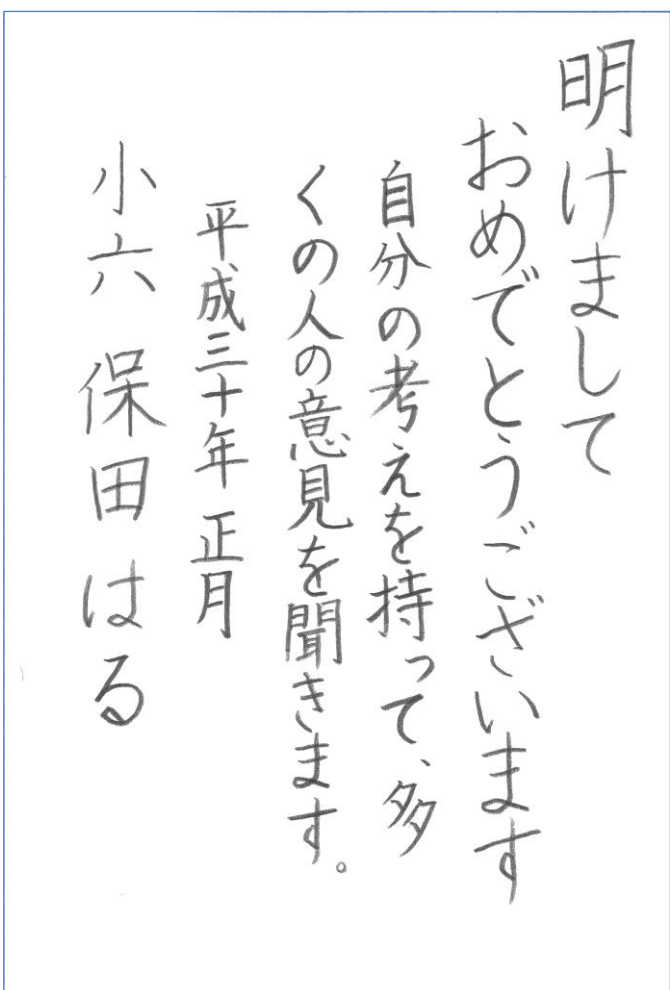 明けまして
おめでとうございます
自分の考えを持って、多
くの人の意見を聞きます。
平成三十年 正月
小六 保田はる